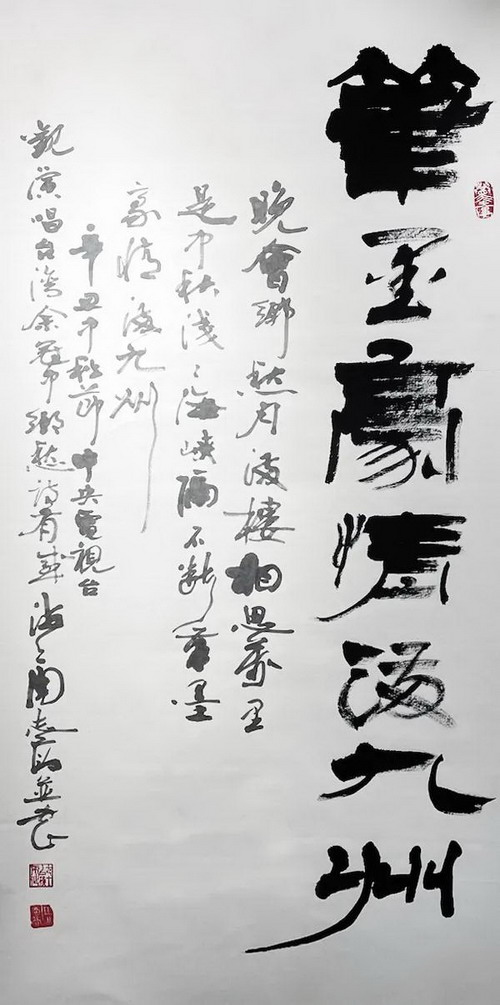 筆墨豪情滿九州
晚會鄉愁月滿樓相思萬里
是中秋淺〻海峽隔不斷筆墨
豪情滿九州
辛丑中秋節中央電視台
觀演唱台灣余冠中鄉愁詩有感並書